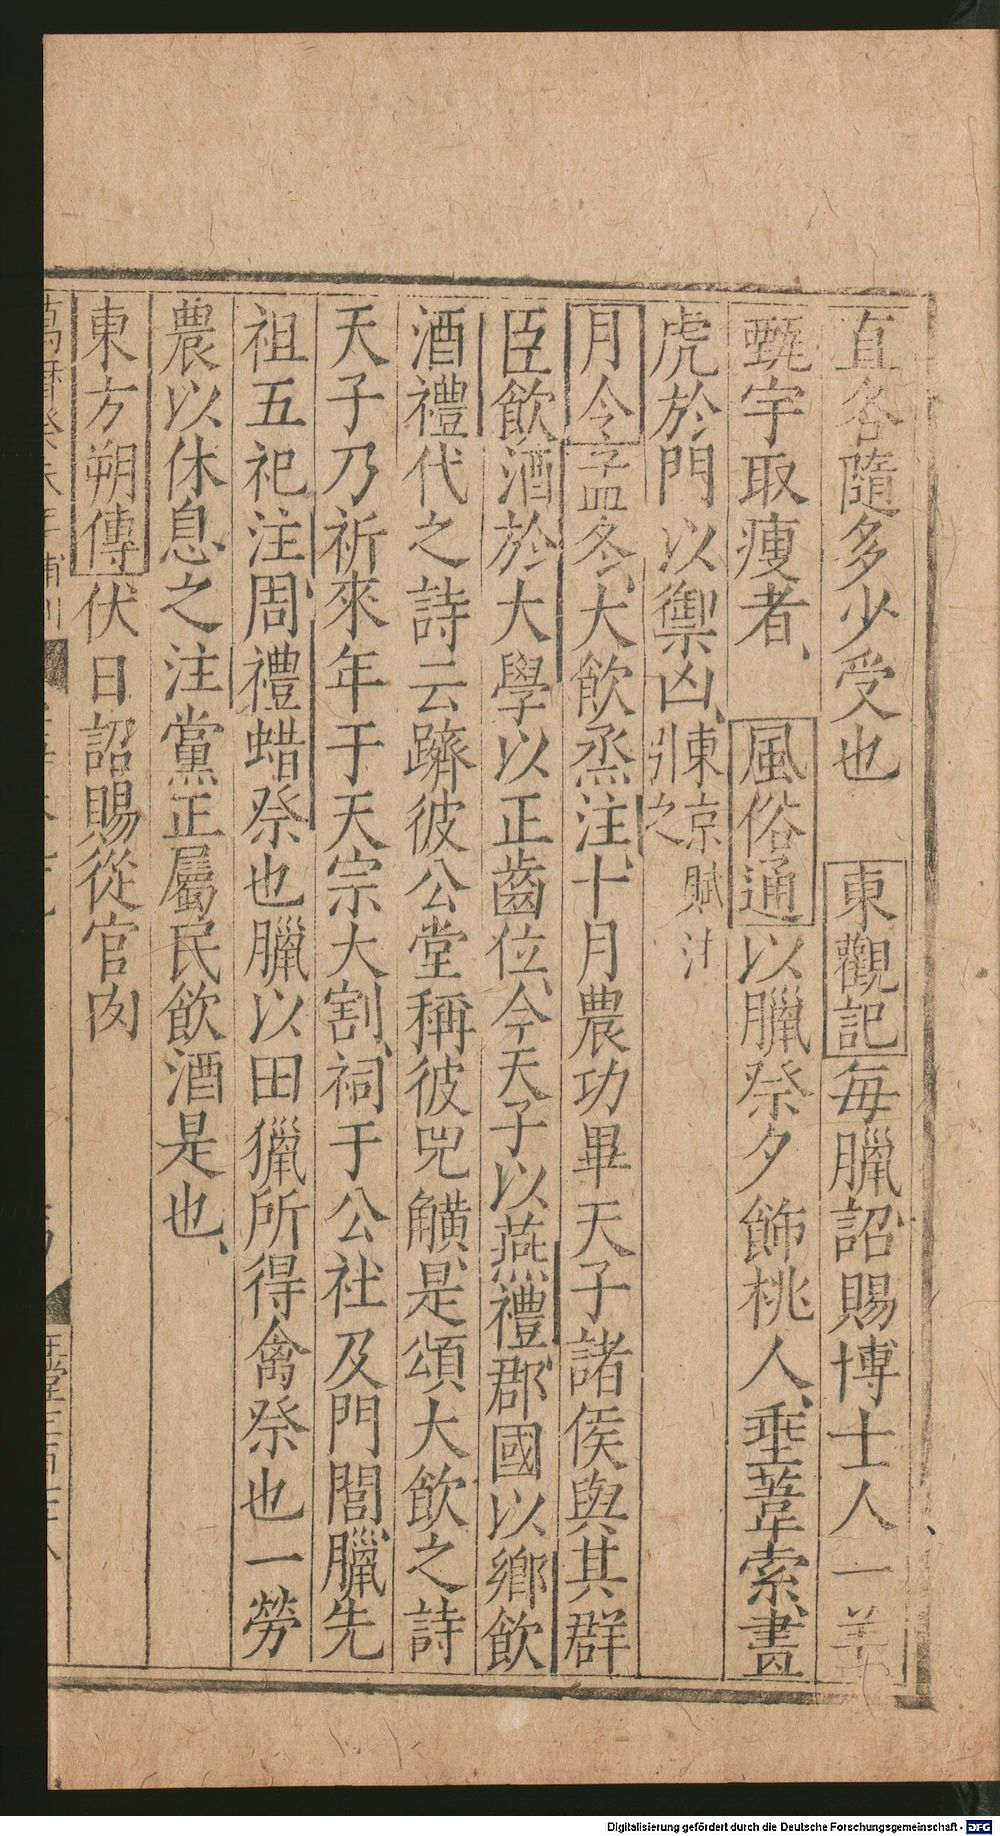 直各隨多少受也　東觀記每臘詔賜博士人一羊
甄宇取瘦者、　風俗通以臘祭夕飾桃人、垂葦索、畫
虎於門以禦凶、東京賦注引之
月令孟冬、大飲烝注、十月農功畢天子諸侯與其群
臣飲酒於大學以正齒位、今天子以燕禮郡國以鄉飲
酒禮代之詩云躋彼公堂稱彼兕觵、是頌大飲之詩
天子乃祈來年于天宗大割、祠于公社及門閭、臘先
祖五祀注、周禮蜡祭也臘以田獵所得禽祭也一勞
農以休息之注黨正屬民飲酒是也、
東方朔傳伏日詔賜從官肉
萬曆癸未年補刊
Digitalisierung gefördert durch die Deutsche Forschungsgemeinschaft - DFG